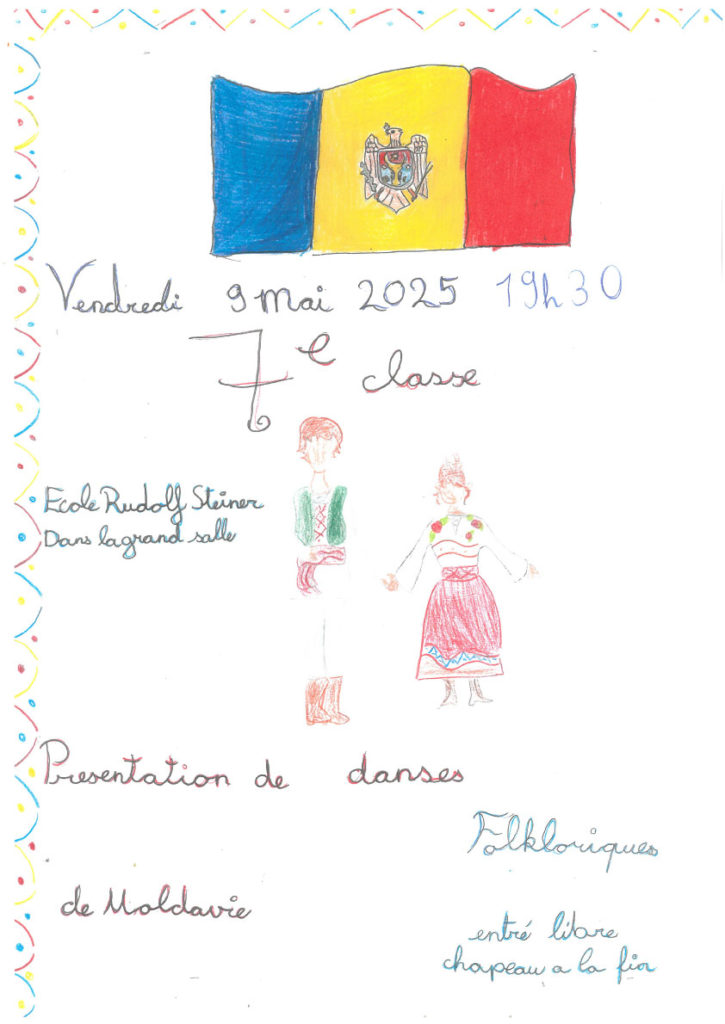 Vendredi 9 Mai 2025 19h30
7e classe
Ecole Rudolf Steiner
Dans lagrand salle
Presentation de danses
Folkloriques
de Moldavie
entré libre
chapeau a la fin